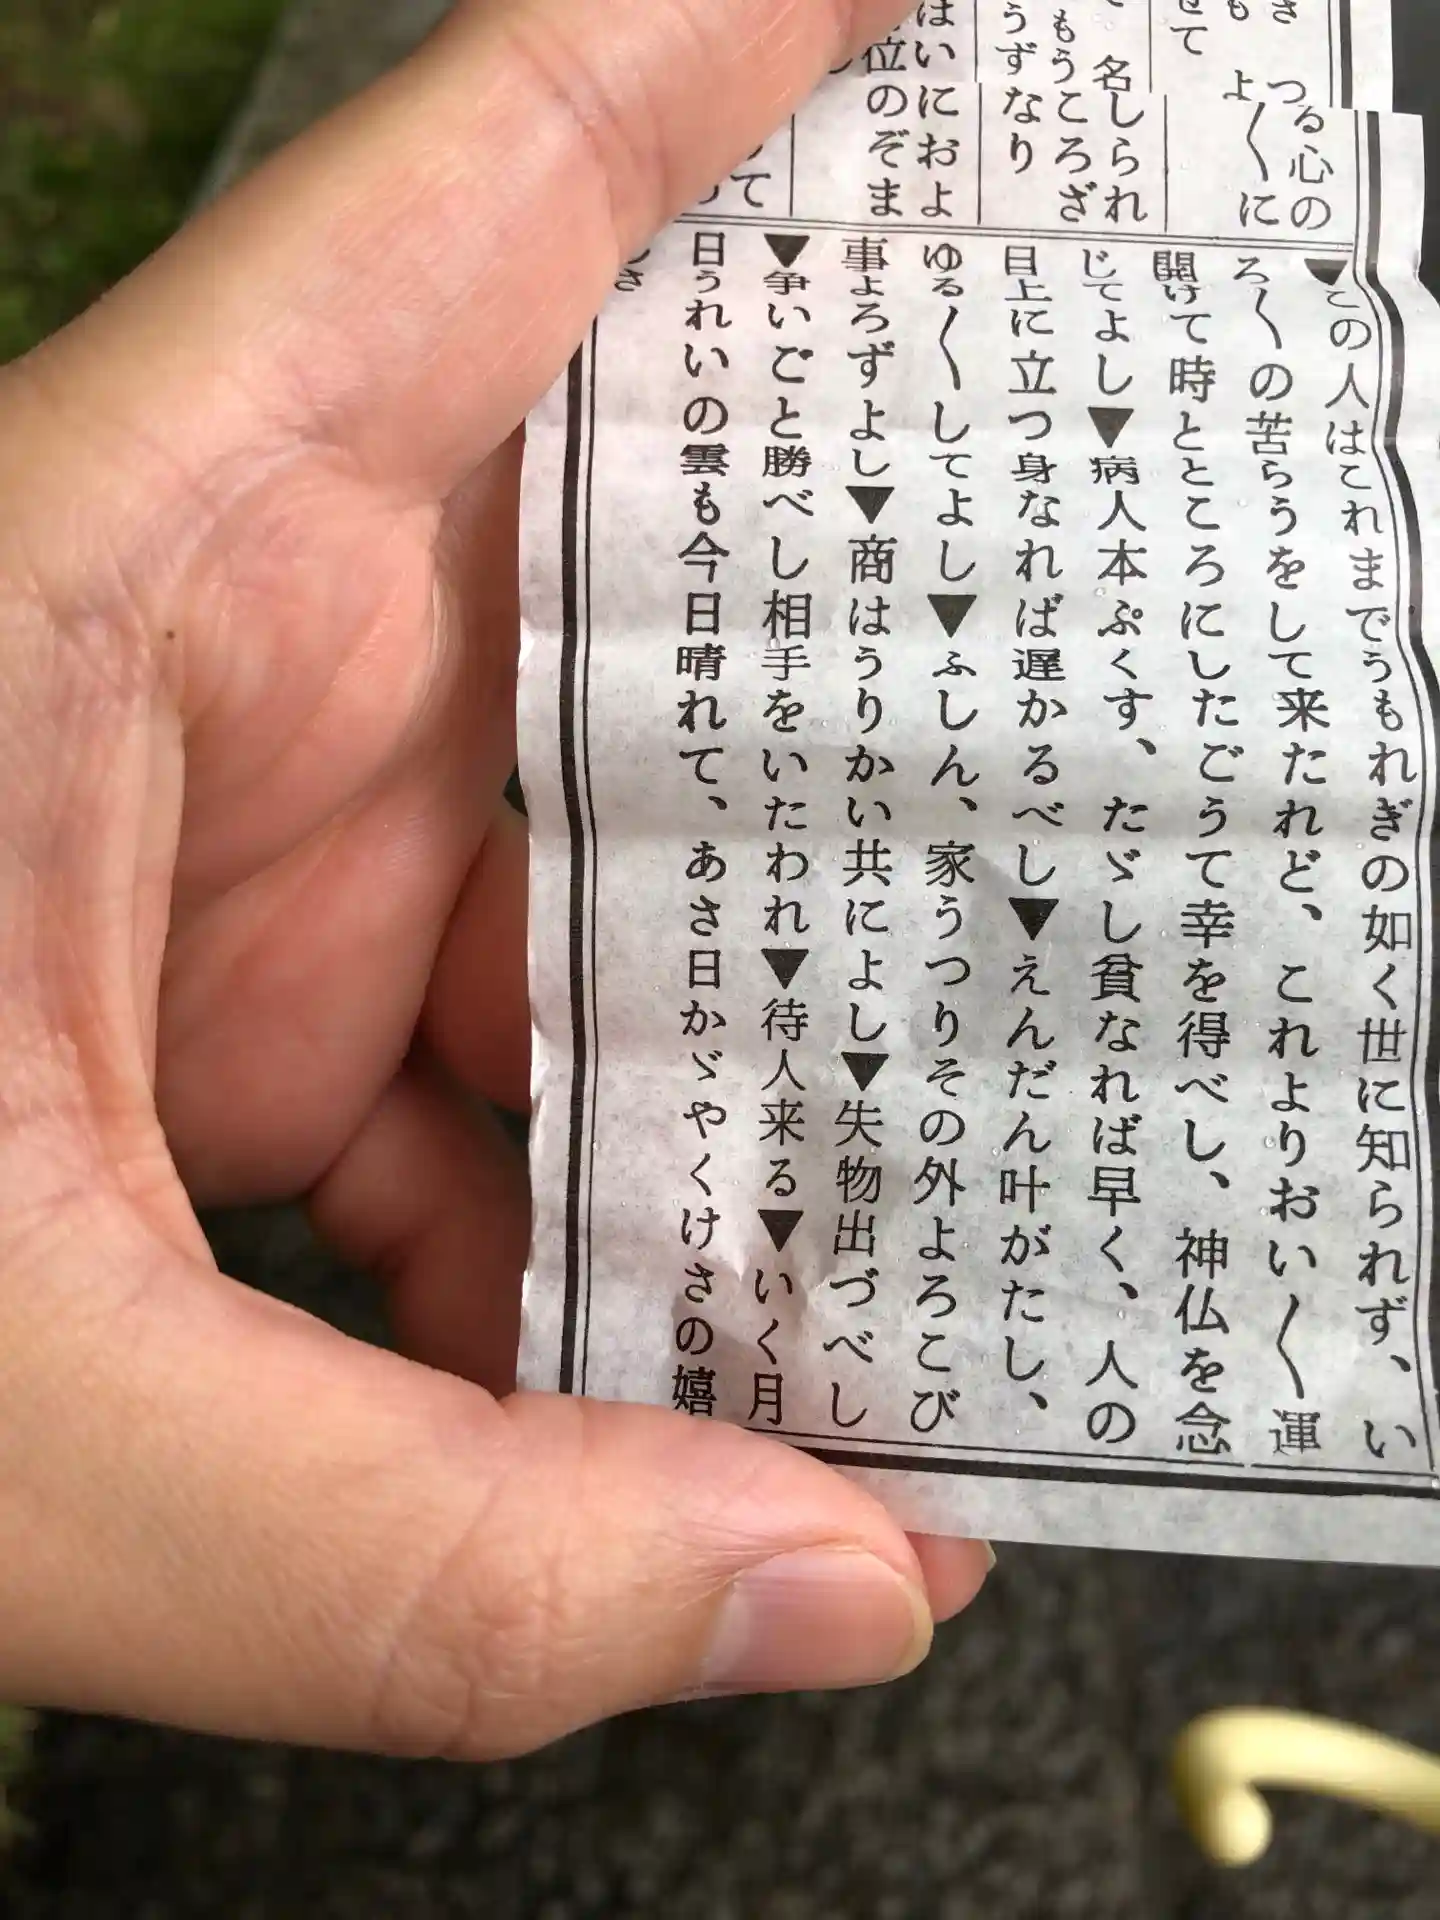 つる心の
よ〱に
名しられ
もうころざ
うずなり
はいにおよ
位のぞま
▼この人はこれまでうもれぎの如く世に知られず、い
ろ〱の苦らうをして来たれど、これよりおい〱運
開けて時ところにしたごうて幸を得べし、神仏を念
じてよし▼病人本ぷくす、たゞし貧なれば早く、人の
目上に立つ身なれば遅かるべし▼えんだん叶がたし、
ゆる〱してよし▼ふしん、家うつりその外よろこび
事よろずよし▼商はうりかい共によし▼失物出づべし
▼争いごと勝べし相手をいたわれ▼待人来る▼いく月
日うれいの雲も今日晴れて、あさ日かゞやくけさの嬉
しさ